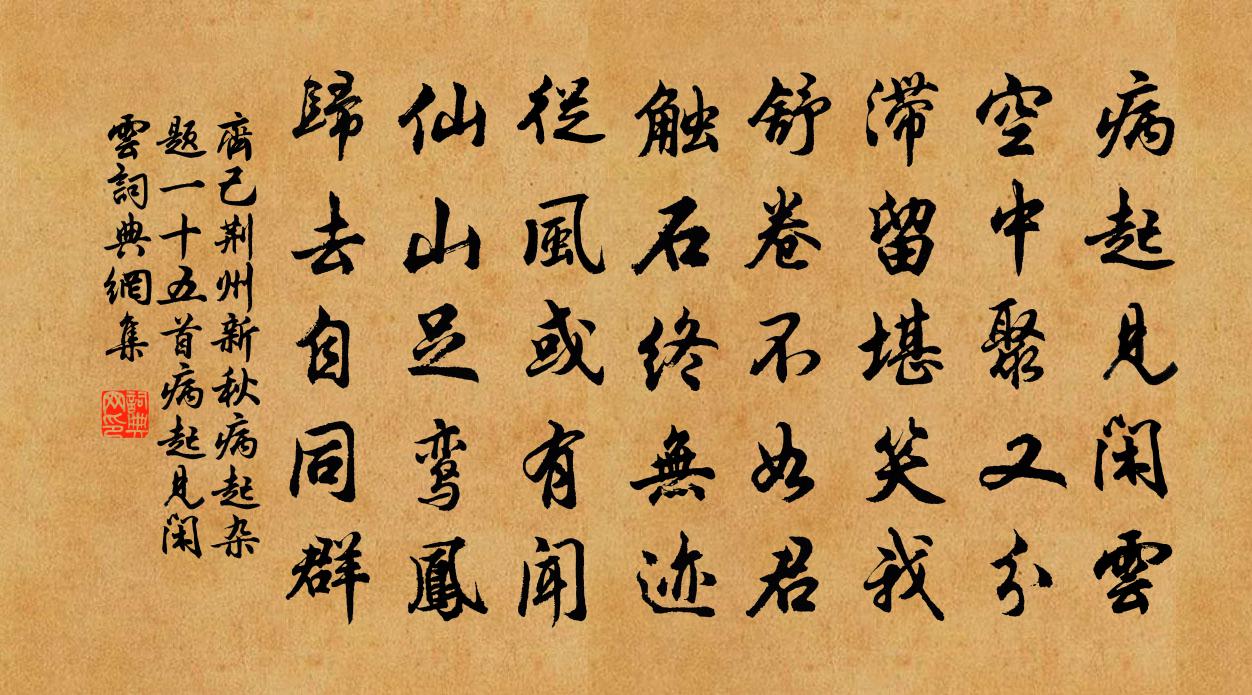 病起見闲雲
空中聚又分
滞留堪笑我
舒卷不如君
触石终無迹
從風或有聞
仙山足鸾鳳
歸去自同群
齊己荆州新秋病起杂
题一十五首病起見闲
雲詞典網集
詞典
网印